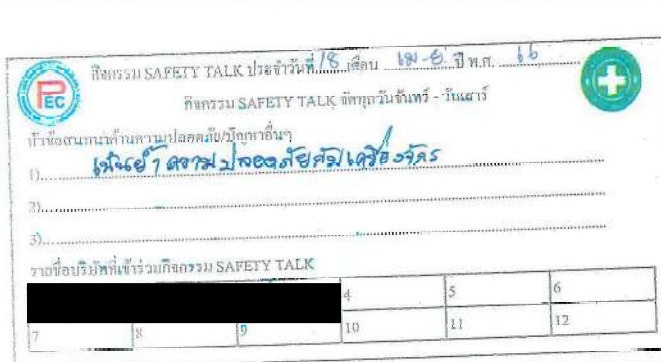 PEC
กิจกรรม SAFETY TALK ประจำวันที่ 18 เดือน เม.ย. ปี พ.ศ. 66
กิจกรรม SAFETY TALK จัดทุกวันจันทร์ - วันเสาร์
หัวข้อสนทนาด้านความปลอดภัย/ปัญหาอื่นๆ
1) เน้นย้ำความปลอดภัยกับเครื่องจักร
2)
3)
รายชื่อบริษัทที่เข้าร่วมกิจกรรม SAFETY TALK
4 5 6
7 8 9 10 11 12